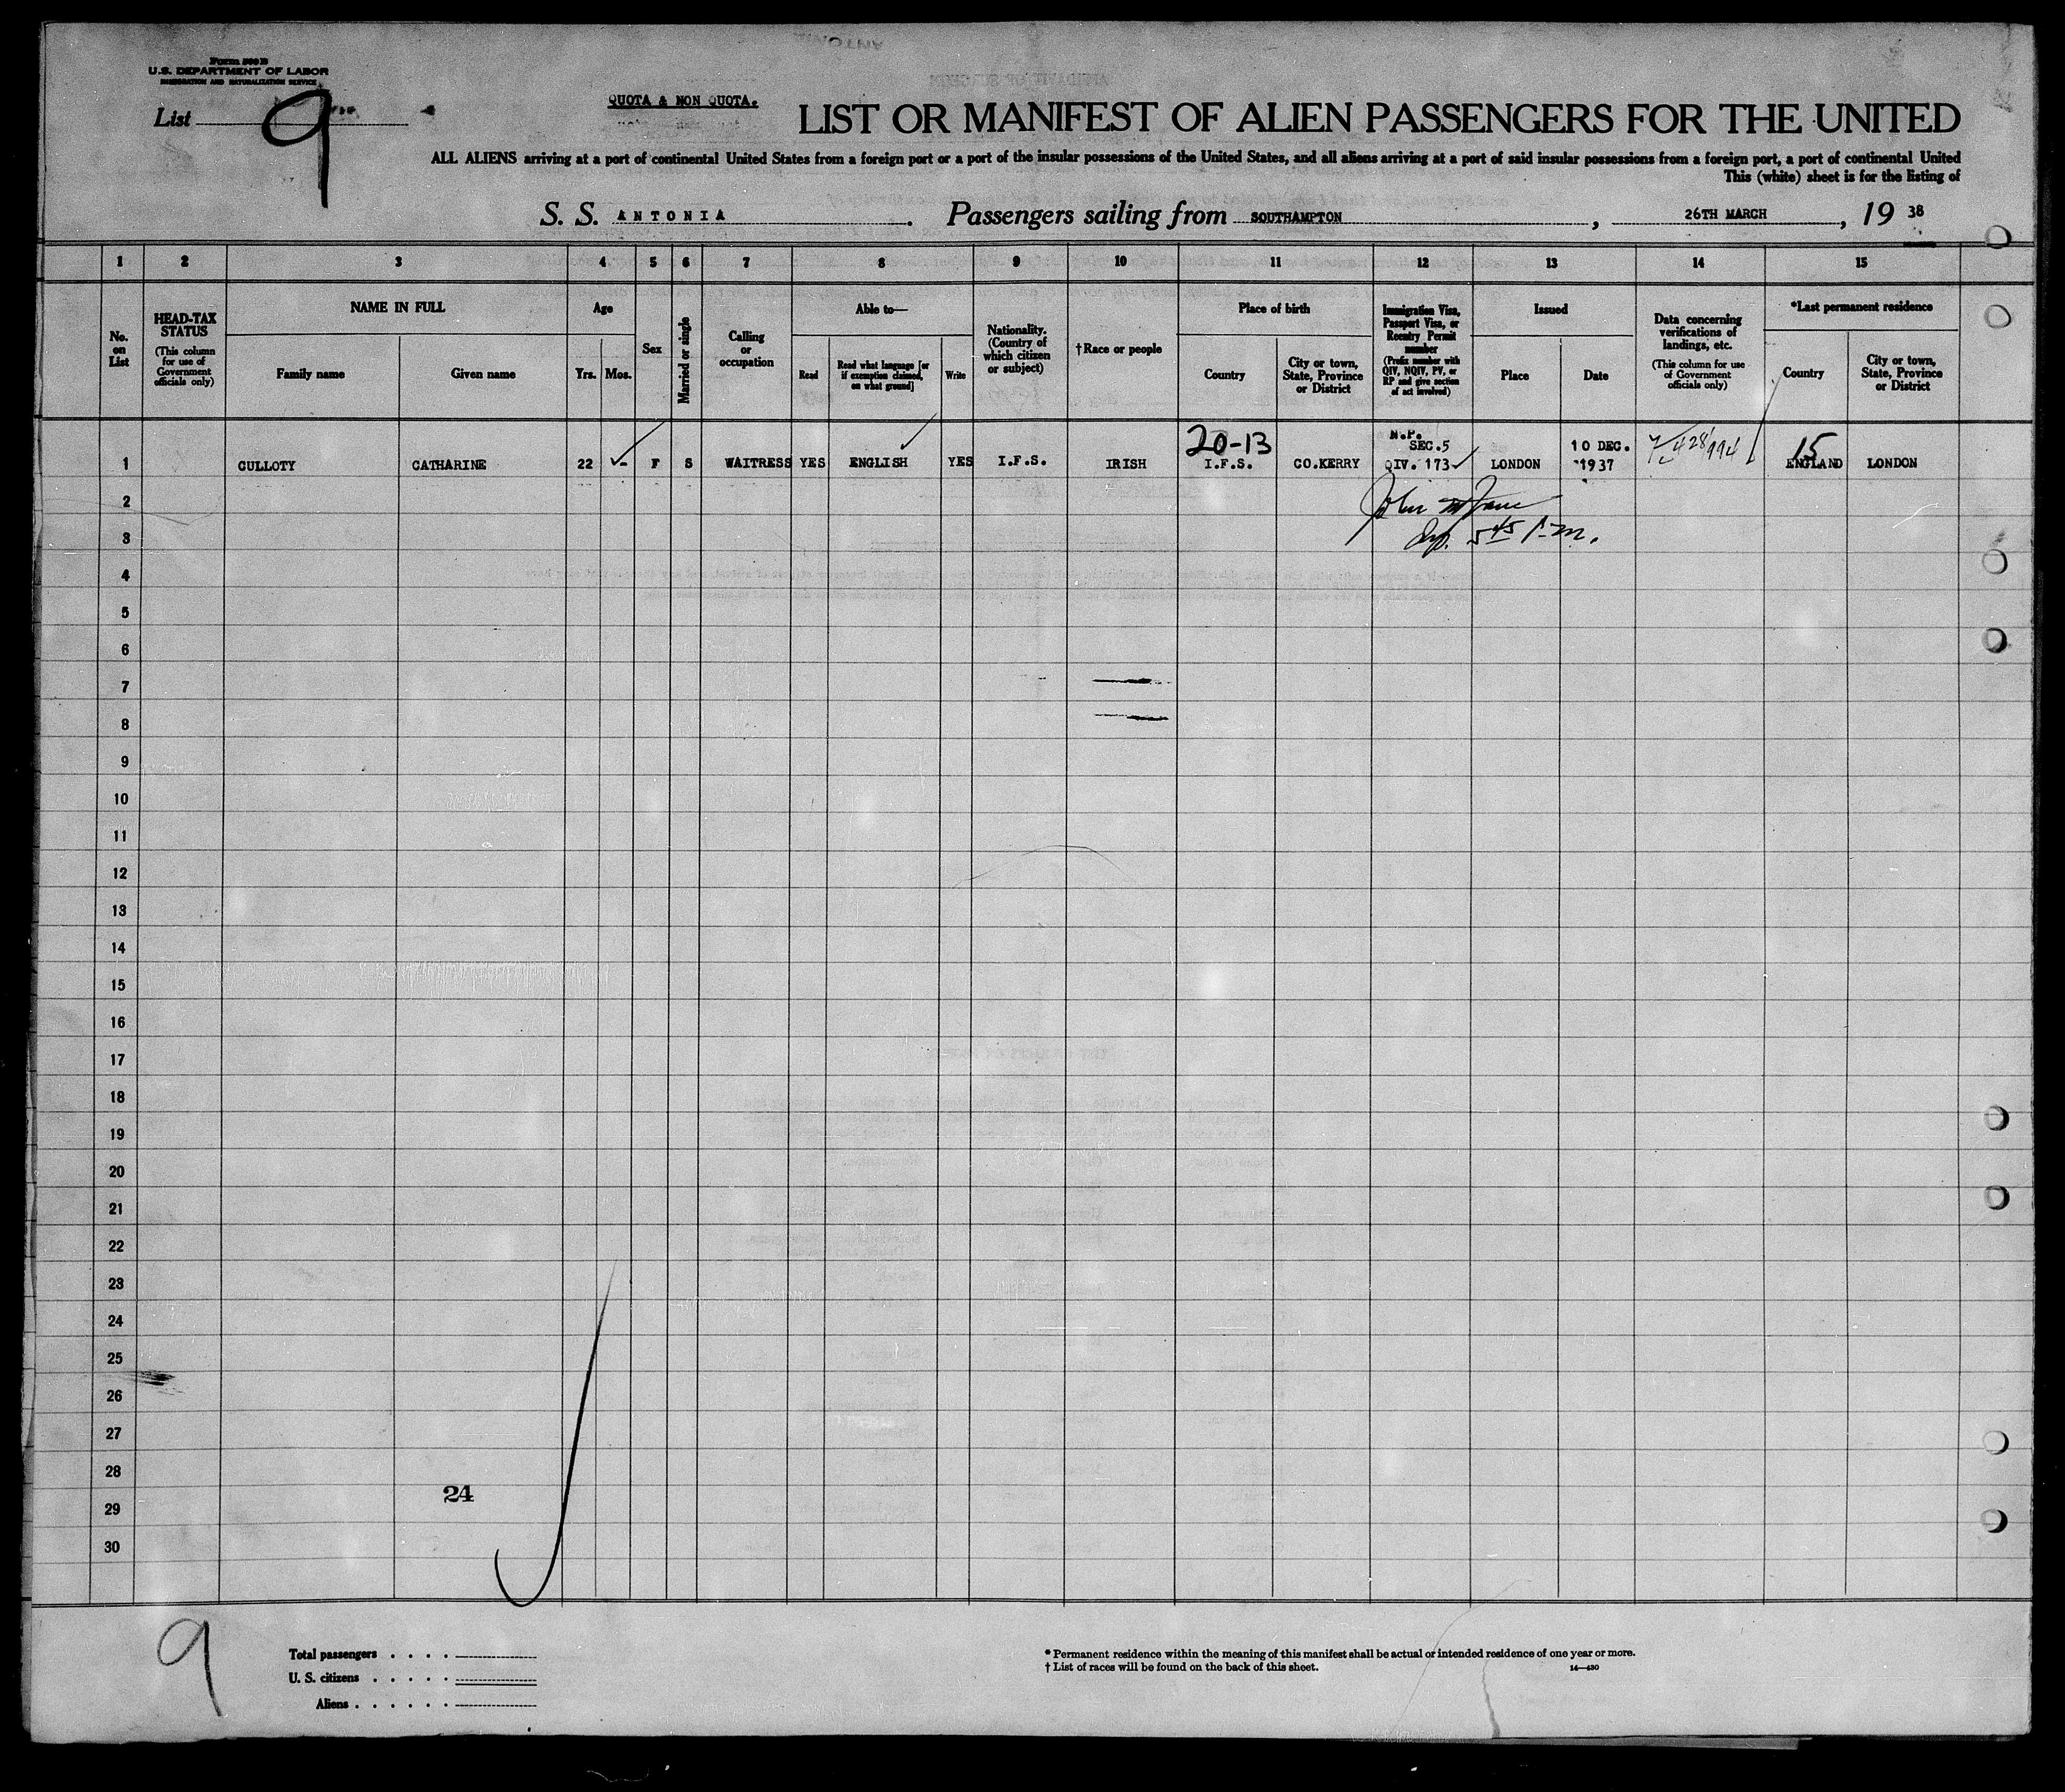 Form 500 B
U.S. DEPARTMENT OF LABOR
IMMIGRATION AND NATURALIZATION SERVICE
List 9
QUOTA & NON QUOTA.
LIST OR MANIFEST OF ALIEN PASSENGERS FOR THE UNITED
ALL ALIENS arriving at a port of continental United States from a foreign port or a port of the insular possessions of the United States, and all aliens arriving at a port of said insular possessions from a foreign port, a port of continental United
This (white) sheet is for the listing of
S. S. ANTONIA. Passengers sailing from SOUTHAMPTON, 26TH MARCH, 19 38
1 2 3 4 5 6 7 8 9 10 11 12 13 14 15
No. on List
HEAD-TAX STATUS
(This column for use of Government officials only)
NAME IN FULL
Family name
Given name
Age
Yrs. Mos.
Sex
Married or single
Calling or occupation
Able to—
Read
Read what language [or if exemption claimed, on what ground]
Write
Nationality. (Country of which citizen or subject)
†Race or people
Place of birth
Country
City or town, State, Province or District
Immigration Visa, Passport Visa, or Reentry Permit number
(Prefix number with QIV, NQIV, PV, or RP and give section of act involved)
Issued
Place
Date
Data concerning verifications of landings, etc.
(This column for use of Government officials only)
*Last permanent residence
Country
City or town, State, Province or District
20-13 N.P. SEC.5 10 DEC. 15
1 CULLOTY CATHARINE 22 - F S WAITRESS YES ENGLISH YES I.F.S. IRISH I.F.S. CO.KERRY QIV. 173 LONDON 1937 ENGLAND LONDON
2
John
3
5 45 P.M.
4
5
6
7
8
9
10
11
12
13
14
15
16
17
18
19
20
21
22
23
24
25
26
27
28
24
29
30
9
Total passengers
U. S. citizens
Aliens
* Permanent residence within the meaning of this manifest shall be actual or intended residence of one year or more.
† List of races will be found on the back of this sheet. 14—430